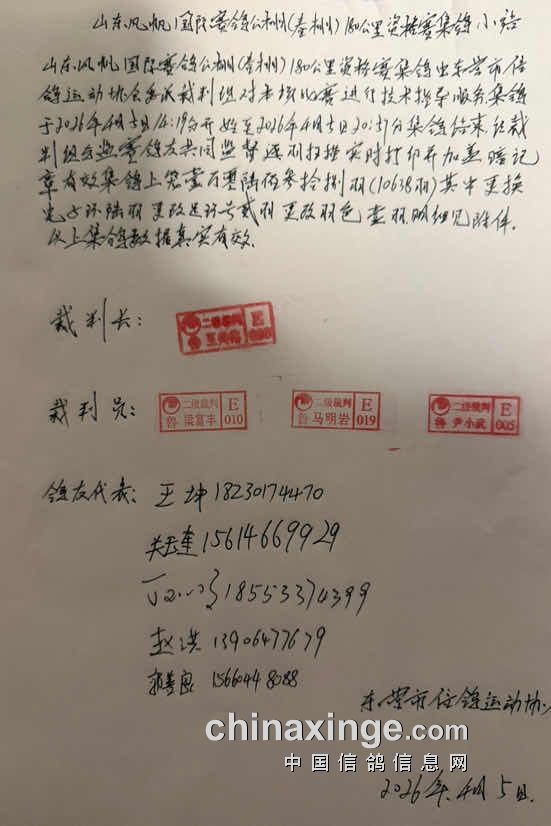 山东风帆国际赛鸽公棚(春棚)180公里资格赛集鸽小结
山东风帆国际赛鸽公棚(春棚)180公里资格赛集鸽由东营市信
鸽运动协会委派裁判组对本场比赛进行技术指导服务,集鸽
于2026年4月5日14:19分开始至2026年4月5日20:51分集鸽结束,经裁
判组与监赛鸽友共同监督逐羽扫描实时打印并加盖暗记
章有效集鸽上笼壹万零陆佰叁拾捌羽(10638羽)其中更换
电子环陆羽更改足环号贰羽更改羽色壹羽,明细见附件.
以上集鸽数据真实有效.
裁判长:
二级裁判 E
鲁
裁判员:
二级裁判 E
鲁 梁富丰 010
二级裁判 E
鲁 马明岩 019
二级裁判 E
鲁 尹小武 005
鸽友代表: 王坤 18230174470
关玉奎 15614669929
18553374399
赵洪 13906477679
郭善良 15660448088
东营市信鸽运动协
chinaxinge.com
中国信鸽信息网
2026年4月5日.